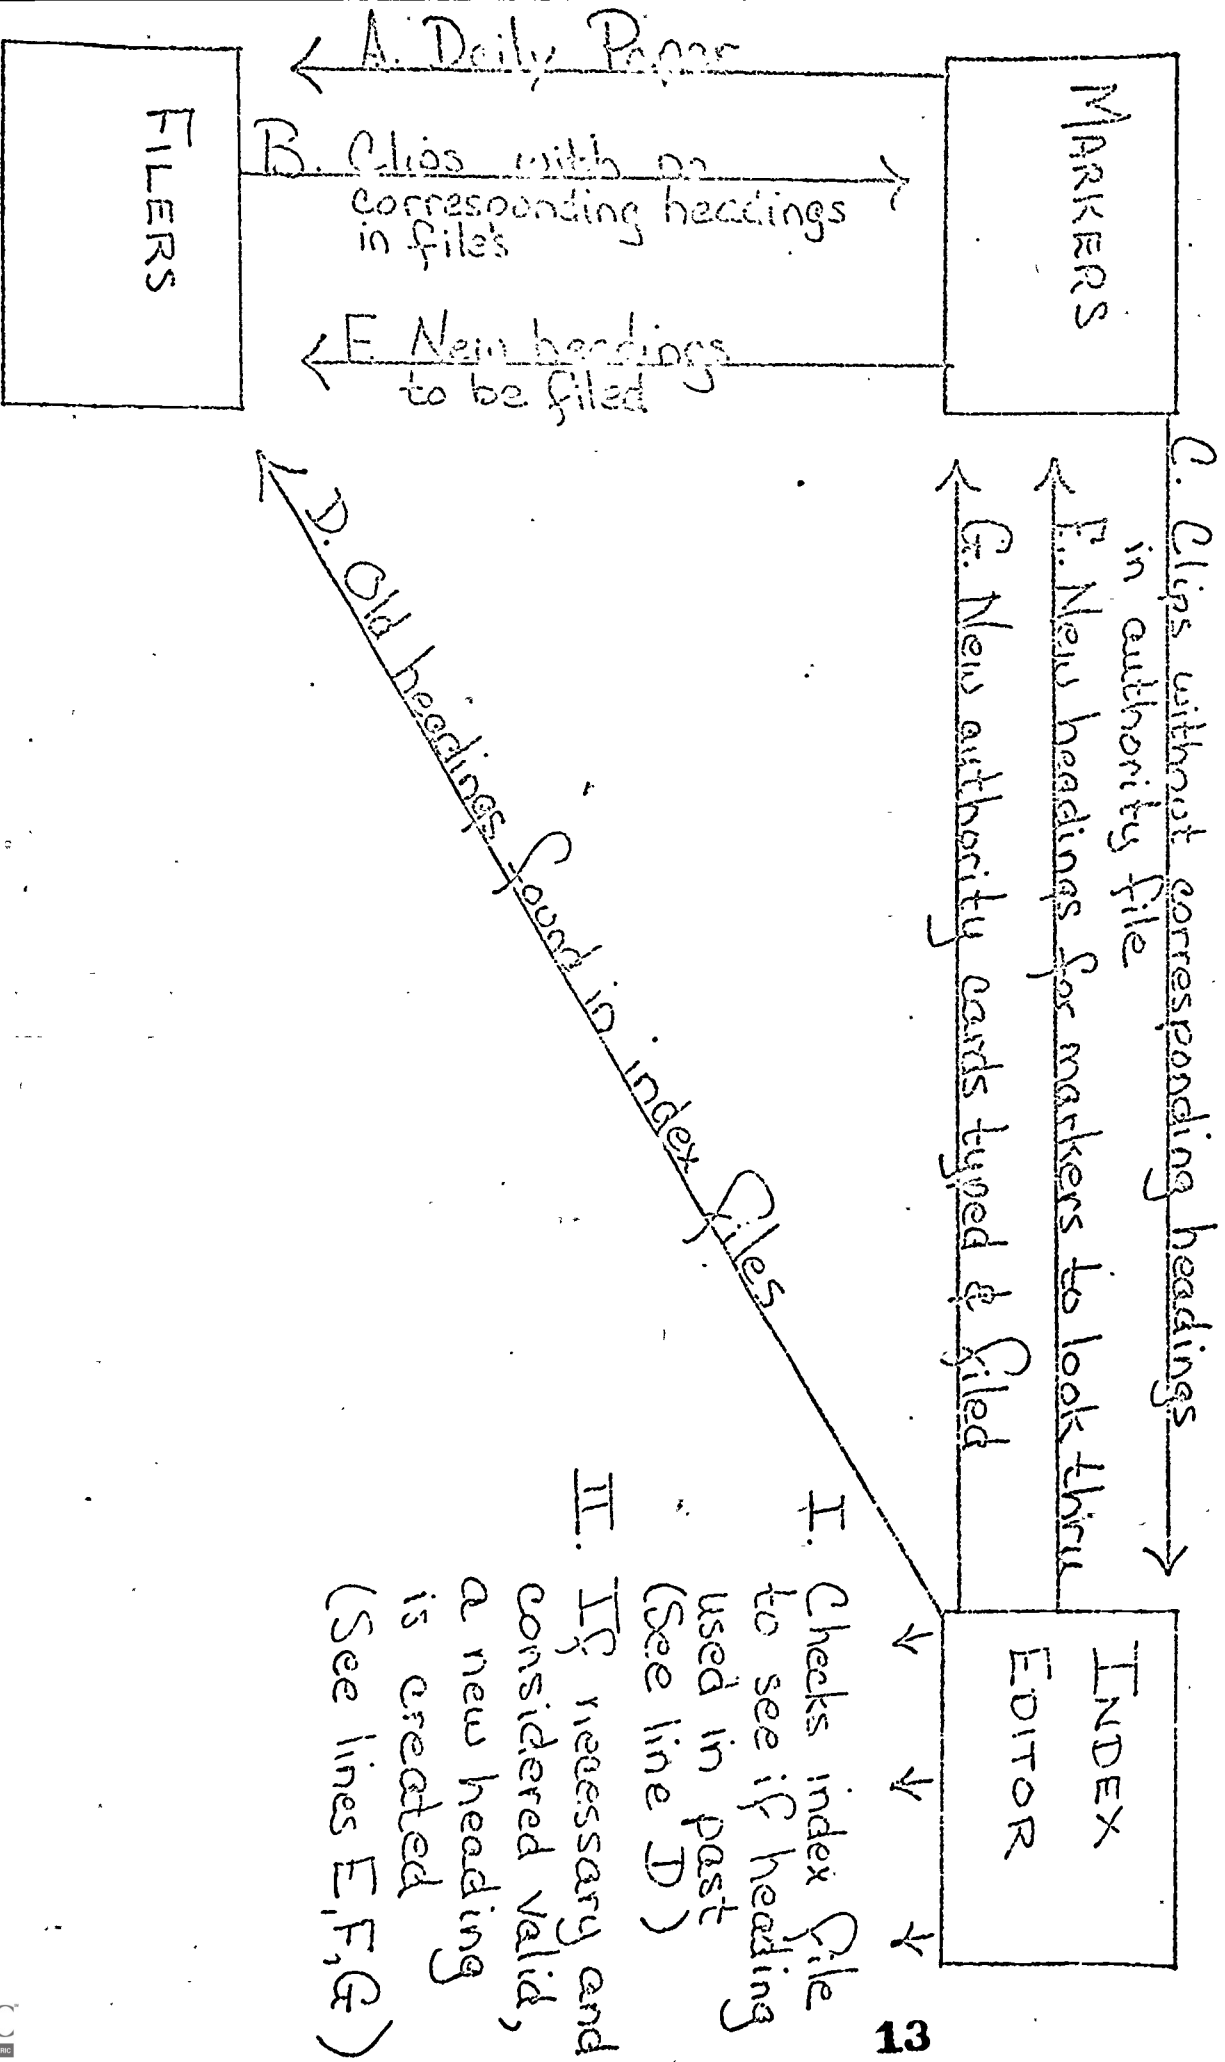 A. Daily Paper
B. Clips with no
corresponding headings
in files
F. New headings
to be filed
FILERS
MARKERS
C. Clips without corresponding headings
in authority file
E. New headings for markers to look thru
G. New authority cards typed & filed
D. Old headings found in index files
INDEX
EDITOR
I. Checks index file
to see if heading
used in past
(See line D)
II. If necessary and
considered valid,
a new heading
is created
(See lines E,F,G)
13